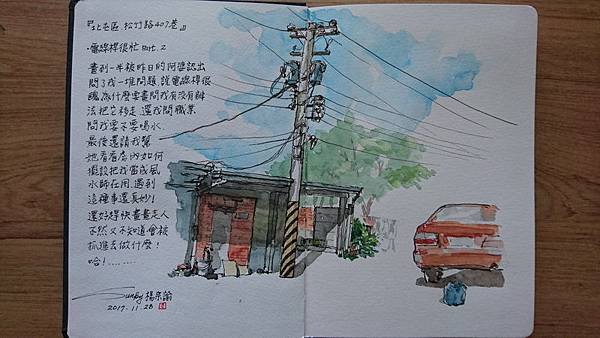 『北屯區.松竹路407巷』
·電線桿很忙 Part.2
畫到一半被昨日的阿婆認出
問了我一堆問題.說電線桿很
醜為什麼要畫問我有沒有辦
法把它移走.還我問職業
問我要不要喝水.
最後還請我幫
她看看店內如何
擺設把我當成風
水師在用.遇到
這種事還真妙!
還好趕快畫畫走人
不然又不知道會被
抓進去做什麼!
哈!........
Sunky 楊宗諭
2017.11.28